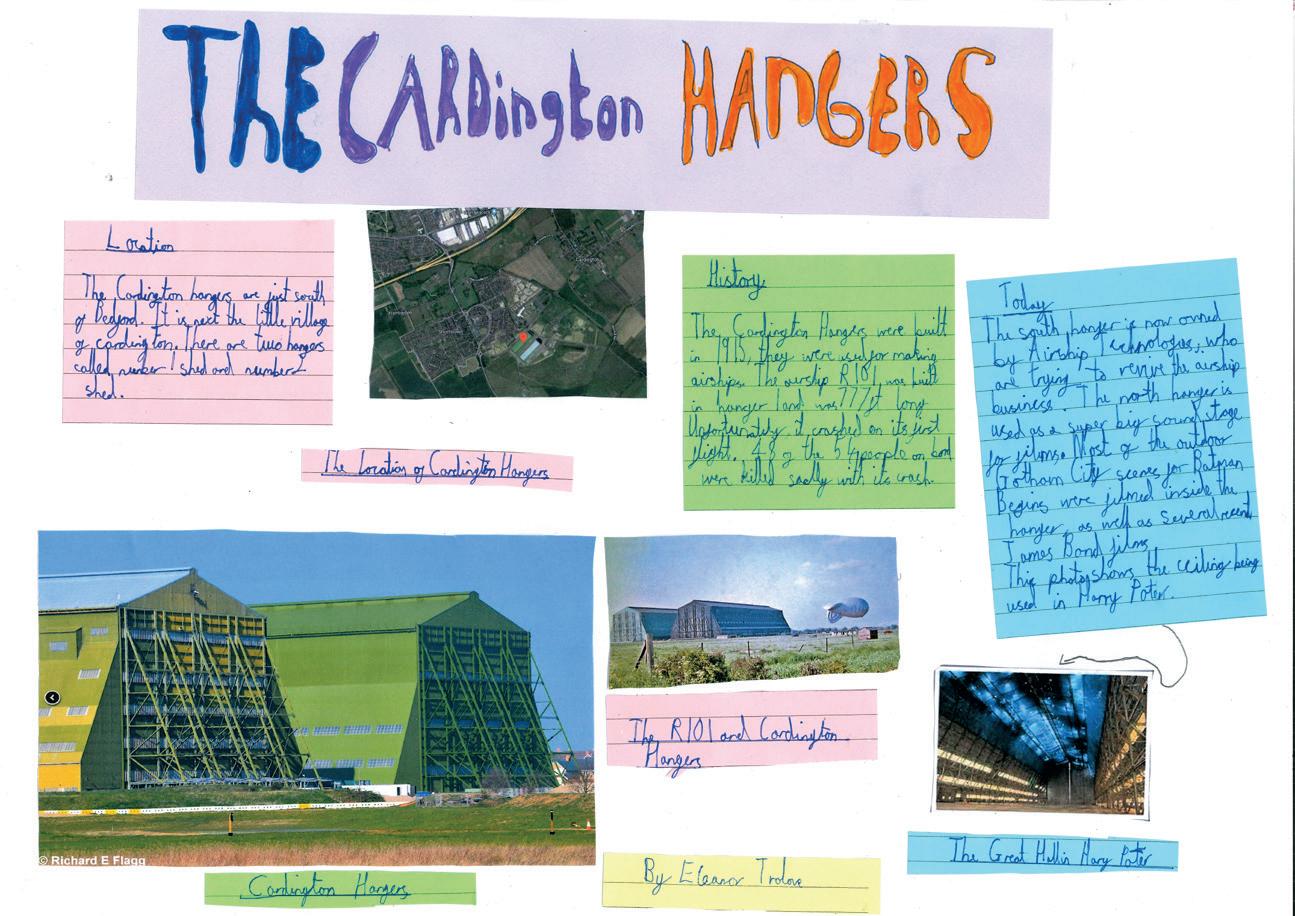 THE CARDington HANGERS
Location
The Cardington hangers are just south
of Bedford. It is next the little village
of cardington. There are two hangers
called number 1 shed and number 2
shed.
The Location of Cardington Hangers
History
The Cardington Hangers were built
in 1915, they were used for making
airships. The airship R101 was built
in hanger 1 and was 777ft long
Unfortunately it crashed on its first
flight. 48 of the 54 people on bord
were killed sadly with its crash.
Today
The south hanger is now owned
by Airship Technologies, who
are trying to revive the airship
business. The north hanger is
used as a super big sound stage
for films. Most of the outdoor
Gotham City scenes for Batman
Begins were filmed inside the
hanger, as well as several recent
James Bond films
This photo shows the ceiling being
used in Harry Poter.
© Richard E Flagg
Cardington Hangers
The R101 and Cardington
Hangers
By Eleanor Trolove
The Great Hall in Hary Poter